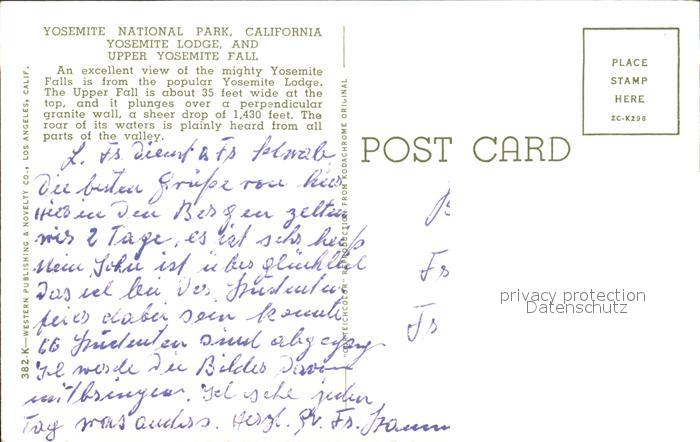 YOSEMITE NATIONAL PARK, CALIFORNIA
YOSEMITE LODGE, AND
UPPER YOSEMITE FALL
An excellent view of the mighty Yosemite
Falls is from the popular Yosemite Lodge.
The Upper Fall is about 35 feet wide at the
top, and it plunges over a perpendicular
granite wall, a sheer drop of 1,430 feet. The
roar of its waters is plainly heard from all
parts of the valley.
L. Frs Dienst & Frs Schwab
Die besten Grüße von hier
Hier in den Bergen zelten
wir 2 Tage, es ist sehr heiß
Mein Sohn ist überglücklich
Das ich bei der Studenten
feier dabei sein konnte
66 Studenten sind abgegang
Ich werde die Bilder davon
mitbringen. Ich sehe jeden
Tag was anders. Herzl. Gr. Fr.
382.K—WESTERN PUBLISHING & NOVELTY CO., LOS ANGELES, CALIF.
REPRODUCTION FROM KODACHROME ORIGINAL
POST CARD
PLACE
STAMP
HERE
2C-K298
Frs
Frs
privacy protection
Datenschutz